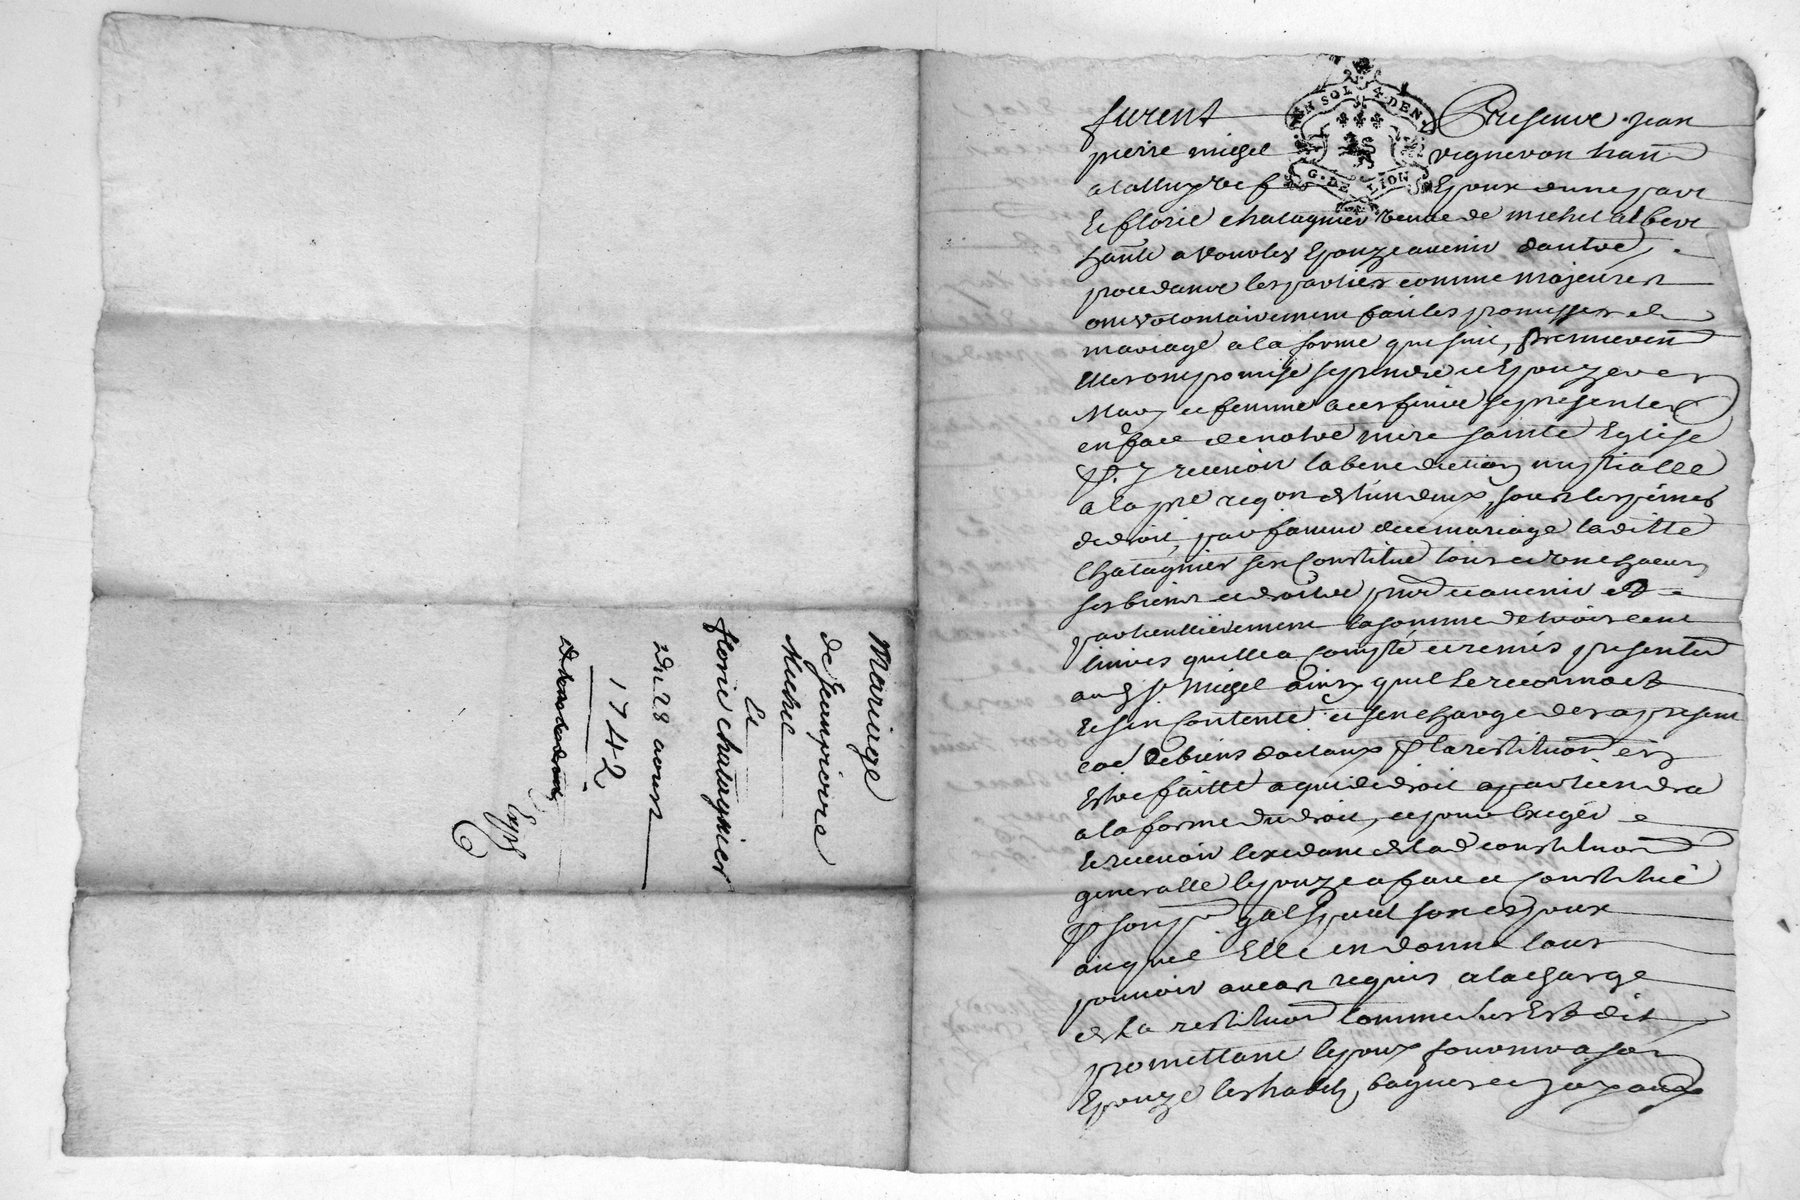 Mariage
de Jeanpierre
Michel
Et
florie chatagnier
Du 28 aoust
1742
Exp
UN SOL 4 DEN
G. DE LION
furent Presents Jean
pierre migel vigneron
Epoux d'une part
Et florie chatagnier veuve de michel albert
Epouze avenir d'autre
procedants les parties comme majeures
ont volontairement fait les promesses de
mariage a la forme que suit, Premierement
Elles ont promise se prendre et Epouzer
Mary et femme se presenter
en face de notre mere sainte Eglise
P. y recevoir la benediction nuptialle
a la pre reqon de l'un d'eux, sous les peines
de droit, par faveur du mariage laditte
Chatagnier s'est Constitué tous et un chacun
ses biens et droits avenir et
particullierement la somme de trois cent
livres qu'elle a compté et remis presentement
aud St Migel ainsy qu'il le reconnoit
Et s'en Contente et s'en charge des a present
de biens dotaux P la restitution en
Estre faitte a qui de droit apartiendra
a la forme du droit, et pour Exiger
Et recevoir de lad constitution
generalle l'epouze a fait et constitué
P son pr gal special son Epoux
auquel Elle en donne tous
pouvoir au cas requis a la charge
de la restitution comme sus Est dit
promettant l'epoux fournir a son
Epouze les habits, bagues et joyaux